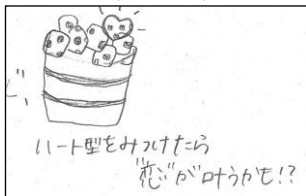 ハート型をみつけたら
"恋"が叶うかも!?